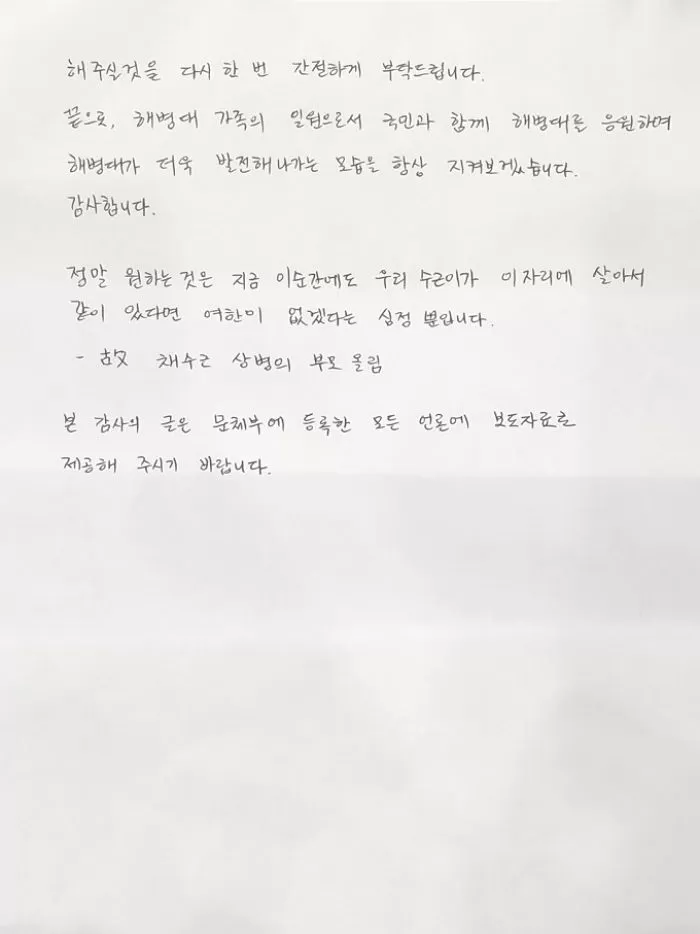 해주실것을 다시 한 번 간절하게 부탁드립니다.
끝으로, 해병대 가족의 일원으로서 국민과 함께 해병대를 응원하며
해병대가 더욱 발전해나가는 모습을 항상 지켜보겠습니다.
감사합니다.
정말 원하는 것은 지금 이순간에도 우리 수근이가 이자리에 살아서
같이 있다면 여한이 없겠다는 심정 뿐입니다.
- 故 채수근 상병의 부모 올림
본 감사의 글은 문체부에 등록한 모든 언론에 보도자료로
제공해 주시기 바랍니다.